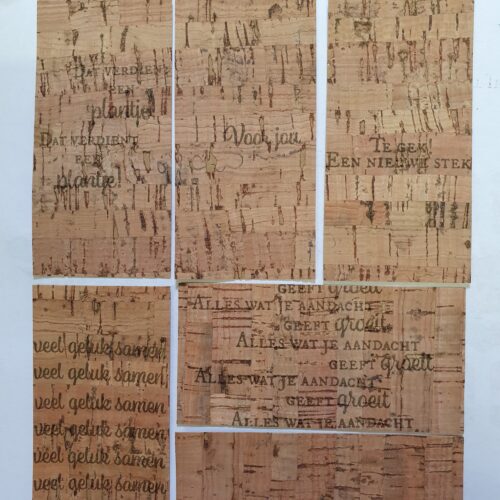 DAT VERDIENT
EEN
plantje
DAT VERDIENT
EEN
plantje!
Voor jou
TE GEK!
EEN NIEUWE STEK
veel geluk samen
veel geluk samen
veel geluk samen
veel geluk samen
veel geluk samen
veel geluk samen
GEEFT groeit
ALLES WAT JE AANDACHT
GEEFT groeit
ALLES WAT JE AANDACHT
GEEFT groeit
ALLES WAT JE AANDACHT
GEEFT groeit
ALLES WAT JE AANDACHT